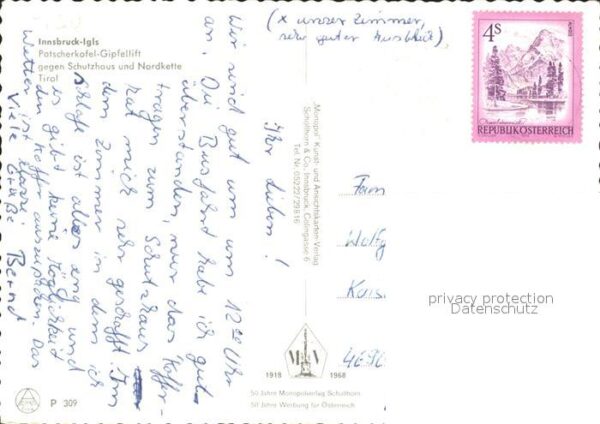 (x unser Zimmer,
sehr guter Ausblick),
Innsbruck-Igls
Patscherkofel-Gipfellift
gegen Schutzhaus und Nordkette
Tirol
Ihr Lieben!
Wir sind gut um um 12 00 Uhr
an. Die Busfahrt habe ich gut
überstanden, nur das Koffer-
tragen zum Schutzhaus
hat mich sehr geschafft. Im
dem Zimmer in dem ich
schlafe ist alles eng und
es gibt keine Möglichkeit
den Koffer auszupacken. Das
Wetter ist klasse.
Viele Grüße Bernd
Monopol Kunst- und Ansichtskarten-Verlag
Schöllhorn & Co., Innsbruck, Gilmgasse 6
Tel. Nr. 05222/29816
4S
ALMSEE
Oberösterreich
REPUBLIK ÖSTERREICH
Fam
Wolfg
Kais
privacy protection
Datenschutz
1918 MV 1968
50 Jahre Monopolverlag Schöllhorn
50 Jahre Werbung für Österreich
P 309